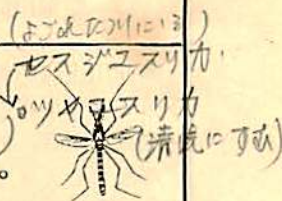 (よごれたつりにいる)
セスジユスリカ
。ツヤユスリカ
(清流にすむ)